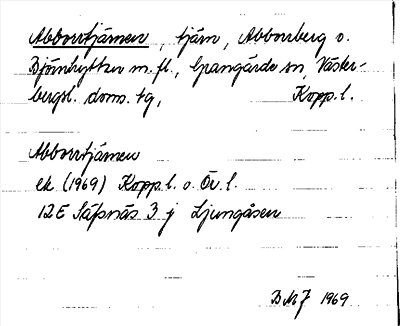 Abborrtjärnen, tjärn, Abborrberg o.
Björnhyttan m.fl., Grangärde sn, Väster-
bergsl. doms. tg, Kopp. l.
Abborrtjärnen
ek (1969) Kopp. l. o. Ör. l.
12E Säfsnäs 3 j Ljungåsen
1969